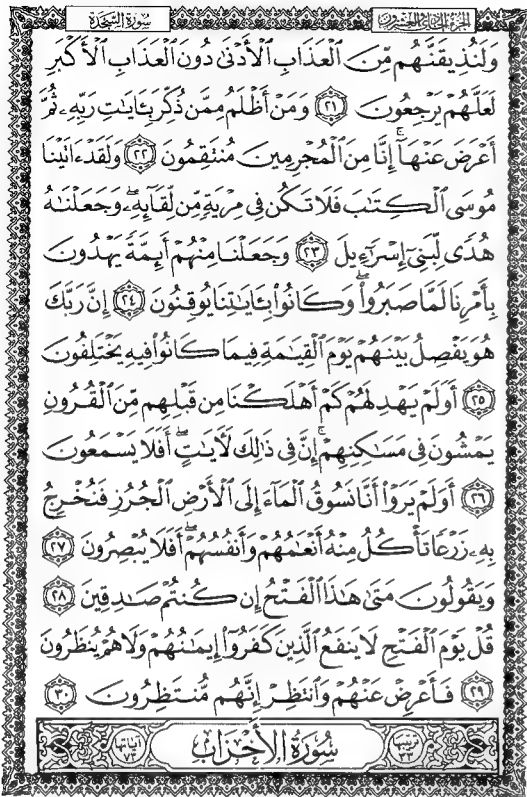 سُورَةُ السَّجْدَةِ الجُزْءُ الحَادِي وَالعِشْرُونَ
وَلَنُذِيقَنَّهُم مِّنَ ٱلْعَذَابِ ٱلْأَدْنَىٰ دُونَ ٱلْعَذَابِ ٱلْأَكْبَرِ
لَعَلَّهُمْ يَرْجِعُونَ ٢١ وَمَنْ أَظْلَمُ مِمَّن ذُكِّرَ بِـَٔايَـٰتِ رَبِّهِۦ ثُمَّ
أَعْرَضَ عَنْهَآ ۚ إِنَّا مِنَ ٱلْمُجْرِمِينَ مُنتَقِمُونَ ٢٢ وَلَقَدْ ءَاتَيْنَا
مُوسَى ٱلْكِتَـٰبَ فَلَا تَكُن فِى مِرْيَةٍ مِّن لِّقَآئِهِۦ ۖ وَجَعَلْنَـٰهُ
هُدًى لِّبَنِىٓ إِسْرَٰٓءِيلَ ٢٣ وَجَعَلْنَا مِنْهُمْ أَئِمَّةً يَهْدُونَ
بِأَمْرِنَا لَمَّا صَبَرُوا۟ ۖ وَكَانُوا۟ بِـَٔايَـٰتِنَا يُوقِنُونَ ٢٤ إِنَّ رَبَّكَ
هُوَ يَفْصِلُ بَيْنَهُمْ يَوْمَ ٱلْقِيَـٰمَةِ فِيمَا كَانُوا۟ فِيهِ يَخْتَلِفُونَ
٢٥ أَوَلَمْ يَهْدِ لَهُمْ كَمْ أَهْلَكْنَا مِن قَبْلِهِم مِّنَ ٱلْقُرُونِ
يَمْشُونَ فِى مَسَـٰكِنِهِمْ ۚ إِنَّ فِى ذَٰلِكَ لَـَٔايَـٰتٍ ۖ أَفَلَا يَسْمَعُونَ
٢٦ أَوَلَمْ يَرَوْا۟ أَنَّا نَسُوقُ ٱلْمَآءَ إِلَى ٱلْأَرْضِ ٱلْجُرُزِ فَنُخْرِجُ
بِهِۦ زَرْعًا تَأْكُلُ مِنْهُ أَنْعَـٰمُهُمْ وَأَنفُسُهُمْ ۖ أَفَلَا يُبْصِرُونَ ٢٧
وَيَقُولُونَ مَتَىٰ هَـٰذَا ٱلْفَتْحُ إِن كُنتُمْ صَـٰدِقِينَ ٢٨
قُلْ يَوْمَ ٱلْفَتْحِ لَا يَنفَعُ ٱلَّذِينَ كَفَرُوٓا۟ إِيمَـٰنُهُمْ وَلَا هُمْ يُنظَرُونَ
٢٩ فَأَعْرِضْ عَنْهُمْ وَٱنتَظِرْ إِنَّهُم مُّنتَظِرُونَ ٣٠
ترتيبها ٣٣ سُورَةُ الأَحْزَابِ آياتها ٧٣